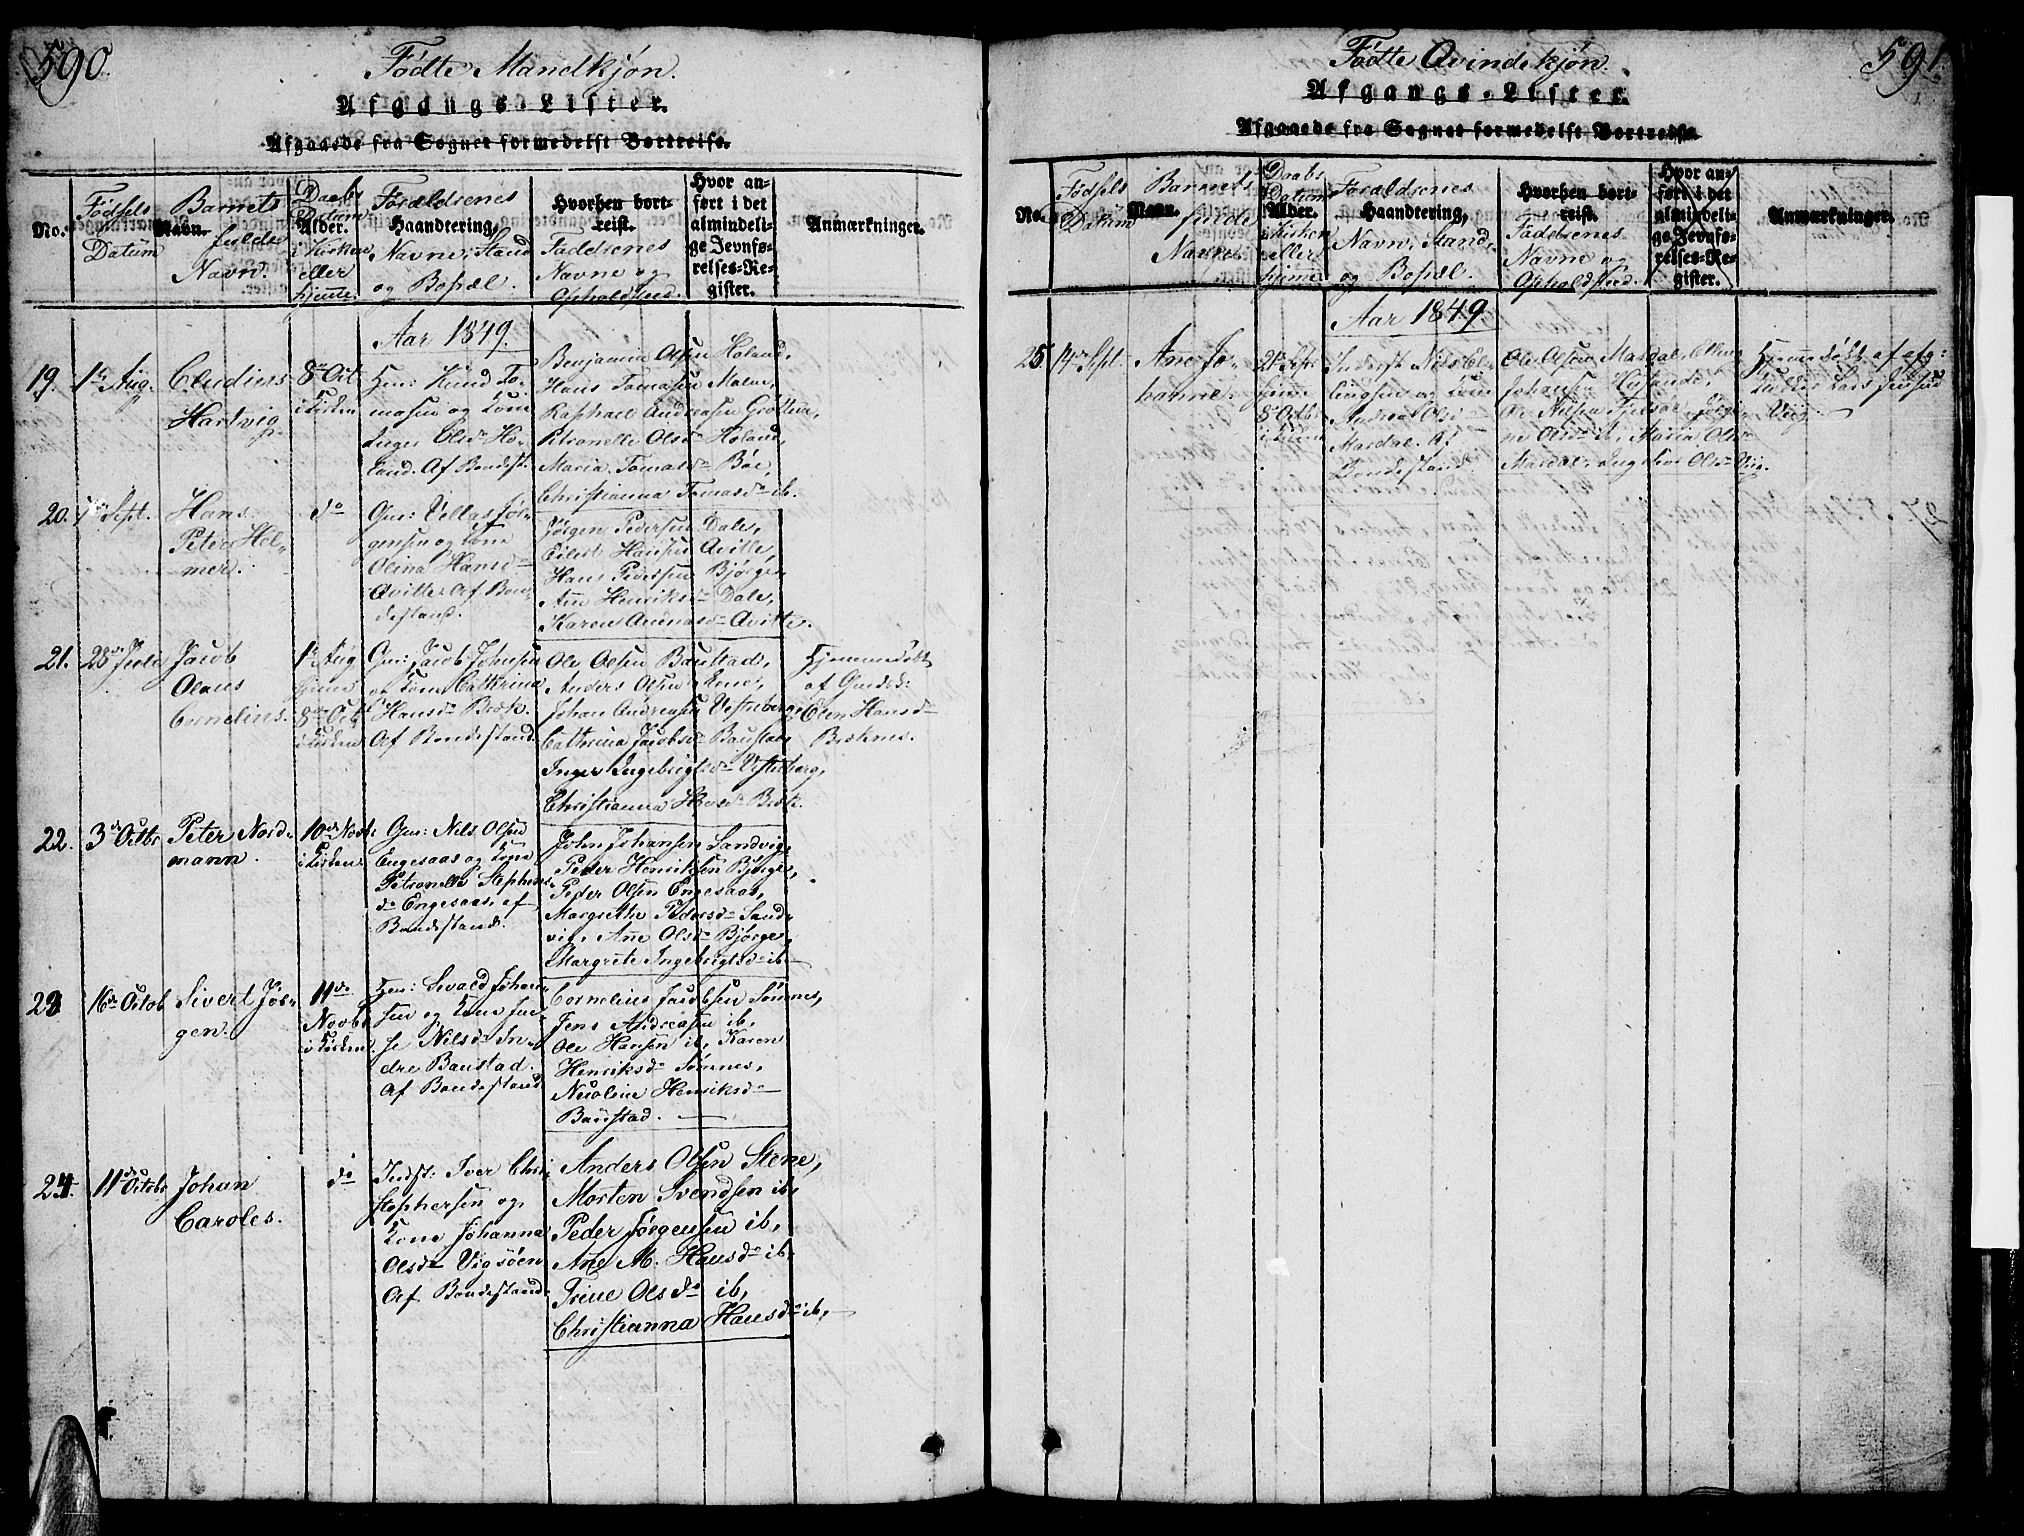 590.
Fødte Mandkjøn.
Afgangs-Lister.
Afgaaede fra Sognet formedelst Bortreise.
No.
Fødsels
Datum
Barnets
Navn.
fulde
Navn.
Daabs
Datum
Alder.
i Kirken
eller
hjemme.
Forældrenes
Haandtering,
Navne, Stand
og Bopæl.
Hvorhen bort-
reist.
Faddrenes
Navne og
Opholdsted.
Hvor an-
ført i det
almindeli-
ge Jevnfø-
relses-Re-
gister.
Anmærkninger.
Aar 1849.
19.
1ste Aug.
Cludius
Hartvig
8de Oct
i Kirken
Knud To-
masen og Kone
Inger Olsd. Ho-
land. Af Bondest.
Benjamin Olsen Holand,
Hans Tomasen Malme,
Raphael Andreasen Grøttem,
Petronelle Olsd. Holand,
Maria Tomasd. Bøe,
Christianna Tomasd. ib.
20.
Sept.
Hans
Peter Hol-
mer.
do
Gmd: Vellas Jør-
gensen og Kone
Olina Hansd.
Qvitte. Af Bon-
destand.
Jørgen Pedersen Dale,
Eilert Hansen Qvitte,
Hans Pedersen Bjørge,
Ane Henriksd. Dale,
Karen Annasd. Qvitte.
21.
28de Jule
Jacob
Olaus
Cundius.
1ste Aug
hjeme
8de Oct
i Kirken
Gmd: Jacob Johnsen
og Kone Cathrina
Hansd. Bræk.
Af Bondestand.
Ole Olsen Baustad,
Anders Olsen Lene,
Johan Andreasen Vesterberg
Cathrina Jacobsd. Baustad
Inger Ingebrigtsd. Vesterberg,
Christianna Hansd. Bræk.
Hjemmedøbt
af Gmdsk:
Elen Hansd.
Bræknes.
22.
3de Octbr
Peter Nord-
mann.
10de Novb.
i Kirken
Gmd: Nils Olsen
Engesaas og Kone
Petronelle Stephens-
d. Engesaas, af
Bondestand.
John Johansen Sandvig,
Peder Henriksen Bjørge,
Peder Olsen Engesaas,
Margrethe Pedersd. Sand-
vig, Ane Olsd. Bjørge,
Margrete Ingebrigtsd. ib.
23
16de Octob
Sivert Jør-
gen.
11de
Novbr
i Kirken.
Sivald Johan-
sen og Kone Jen-
se Nilsd. In-
dre Baustad.
Af Bondestand
Cornelius Jacobsen Sømnes,
Jens Andreasen ib,
Ole Hansen ib, Karen
Henriksd. Sømnes,
Nicoline Henriksd.
Baustad.
24.
11de Octobr
Johan
Caroles.
do
Indst: Iver Chri-
stophersen og
Kone Johanna
Olsd. Vigsøen
Af Bondestand.
Anders Olsen Stene,
Morten Svendsen ib,
Peder Jørgensen ib,
Ane M. Hansd. ib,
Trine Olsd. ib,
Christianna Hansd. ib,
591.
Fødte Qvindekjøn.
Afgangs-Lister.
Afgaaede fra Sognet formedelst Bortreise.
No.
Fødsels
Datum
Barnets
Navn.
fulde
Navne.
Daabs
Datum
Alder.
i Kirken
eller
hjeme
Forældrenes
Haandtering,
Navn, Stand,
og Bopæl.
Hvorhen bort-
reist.
Faddrenes
Navne og
Opholdsted.
Hvor an-
ført i det
almindeli-
ge Jevnfø-
relses-Re-
gister.
Anmærkninger.
Aar 1849.
25.
14de Sept.
Ane Jo-
hanne.
21de Septr
hjem
8de Octbr
i Kirken
Inderst Nils El-
lingsen og Kone
Andrea Olsd.
Mardal. Af
Bondestand.
Ole Olsen Mardal, Elling
Johansen
Ole Nilsen
ne Olsd. ib, Maria Olsd.
Mardal, Olsd. Viig.
Hjemmedøbt af afg:
Lars Jensen
Viig.